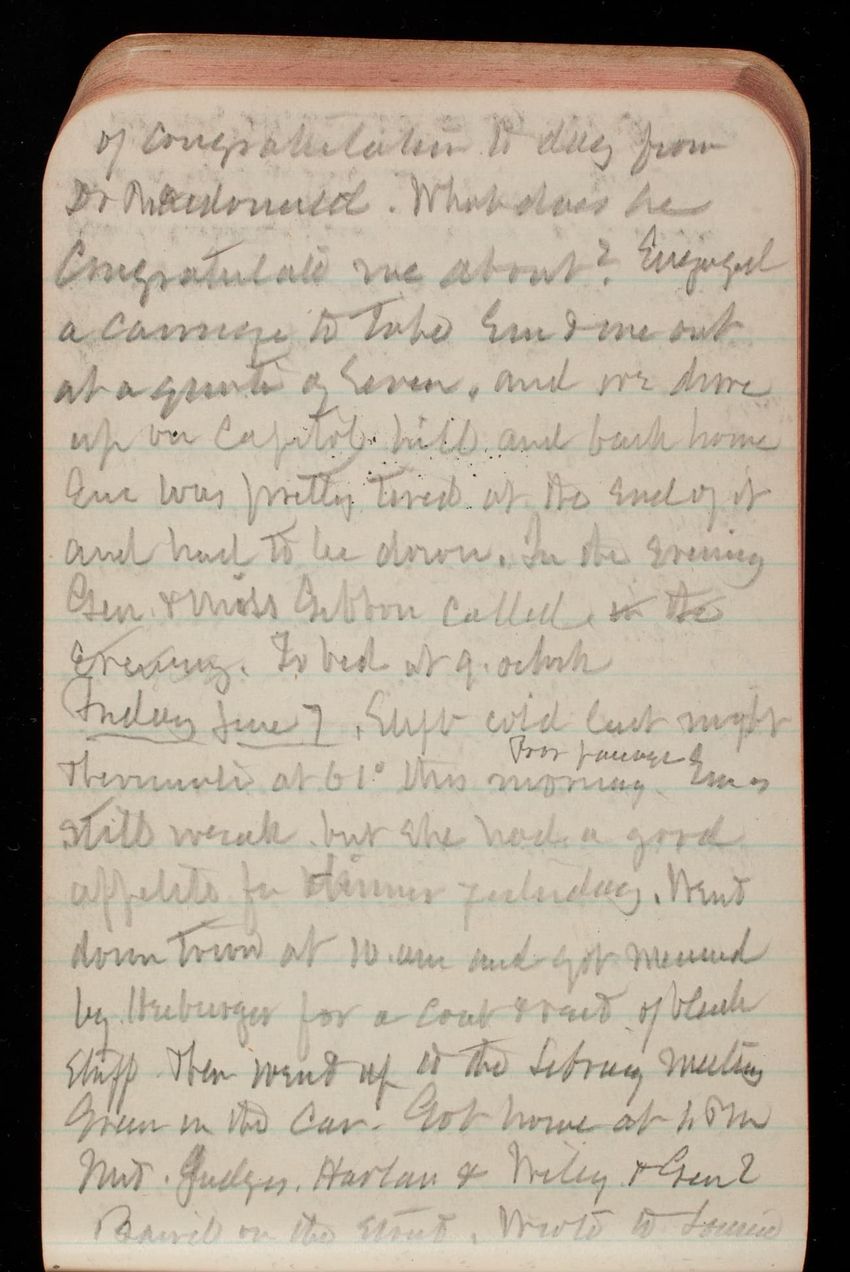 of congratulation to day from
Dr Macdonald. What does he
Congratulate me about? Engaged
a carriage to take Em & me out
at a quarter of Seven, and we drove
up on Capitol hill and back home
Em was pretty tired at the end of it
and had to lie down. In the evening
Gen & Miss Gibbon called in the
evening. To bed at 9. oclock
Friday June 7, Slept cold last night
Thermometer at 61° this morning. Em is
still weak but she had a good
appetite for dinner yesterday. Went
down town at 10. am and got measured
by for a coat & vest of black
Stuff Then went up to the Library meeting
Green in the Car. Got home at PM
Met. Judges. Harlan & Wiley & Genl
Baird on the Street. Wrote to